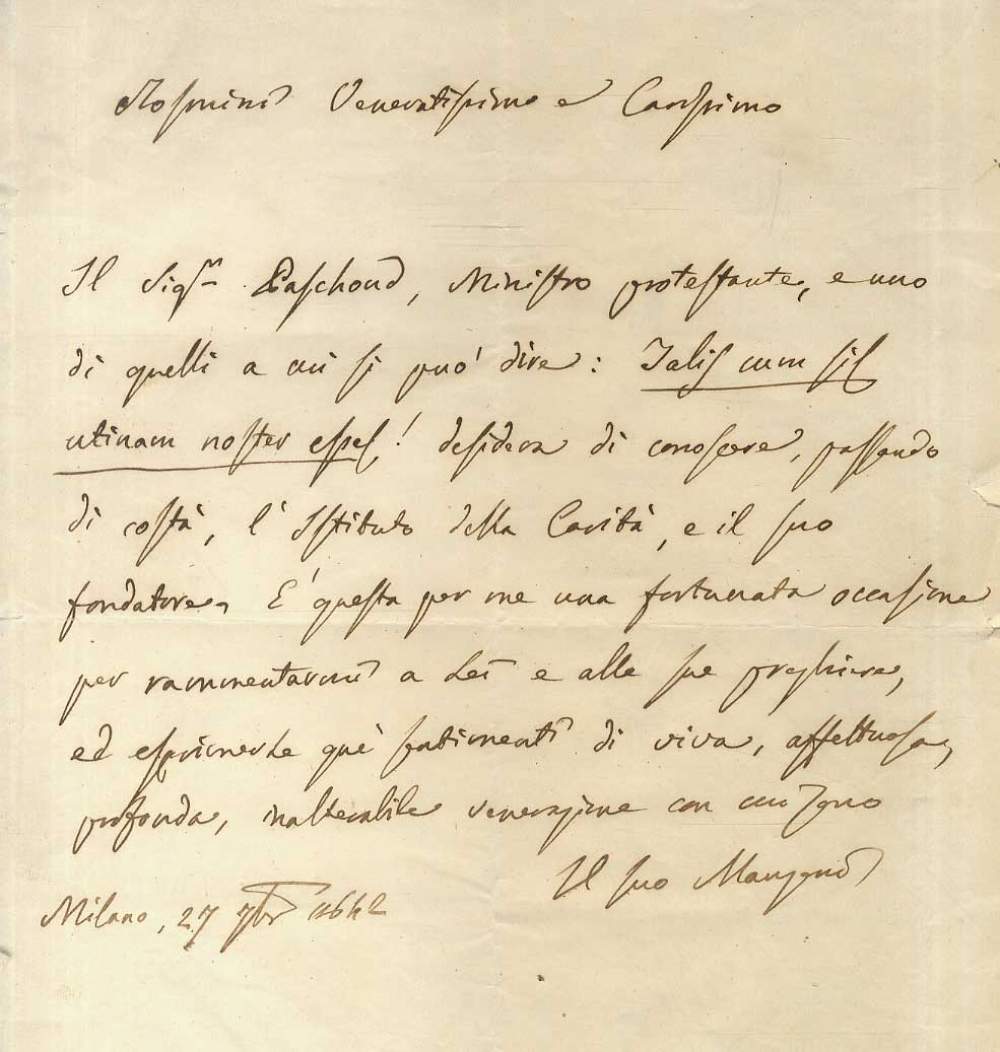 Rosmini Veneratissimo e Carissimo
Il Sigr Paschoud, Ministro protestante, e uno
di quelli a cui si può dire: Talis cum sis
utinam noster esses! desidera di conoscere, passando
di costà, l'Istituto della Carità, e il suo
fondatore. E' questa per me una fortunata occasione
per rammentarmi a Lei e alle sue preghiere,
ed esprimerLe què sentimenti di viva, affettuosa,
profonda, inalterabile venerazione con cui sono
Il suo Manzoni
Milano, 27 7br 1842